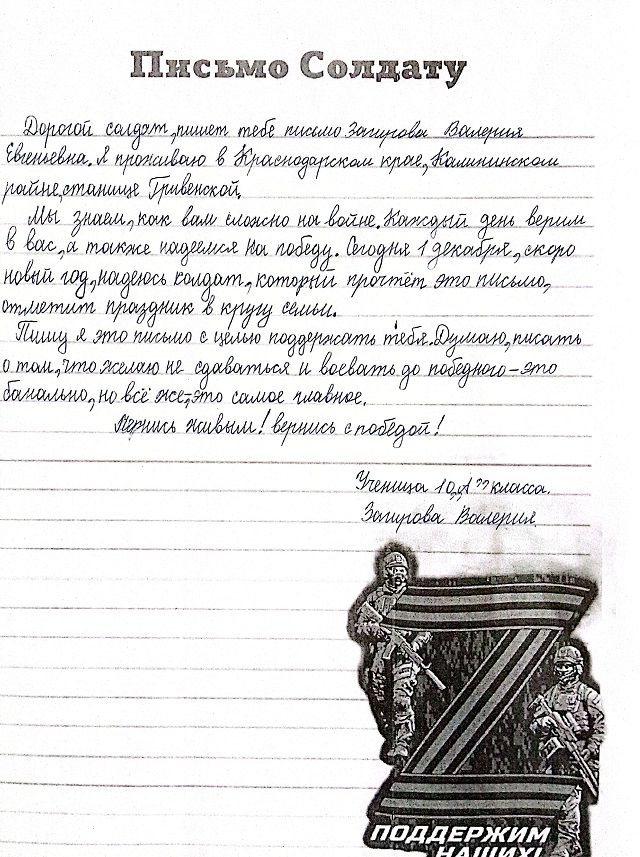 Письмо Солдату
Дорогой солдат, пишет тебе письмо Загирова Валерия
Евгеньевна. Я проживаю в Краснодарском крае, Калининском
районе, станице Гривенской.
Мы знаем, как вам сложно на войне. Каждый день верим
в вас, а также надеемся на победу. Сегодня 1 декабря, скоро
новый год, надеюсь солдат, который прочтёт это письмо,
отметит праздник в кругу семьи.
Пишу я это письмо с целью поддержать тебя. Думаю, писать
о том, что желаю не сдаваться и воевать до победного – это
банально, но всё же, это самое главное.
Вернись живым! вернись с победой!
Ученица 10 „А” класса.
Загирова Валерия.
ПОДДЕРЖИМ
НАШИХ!